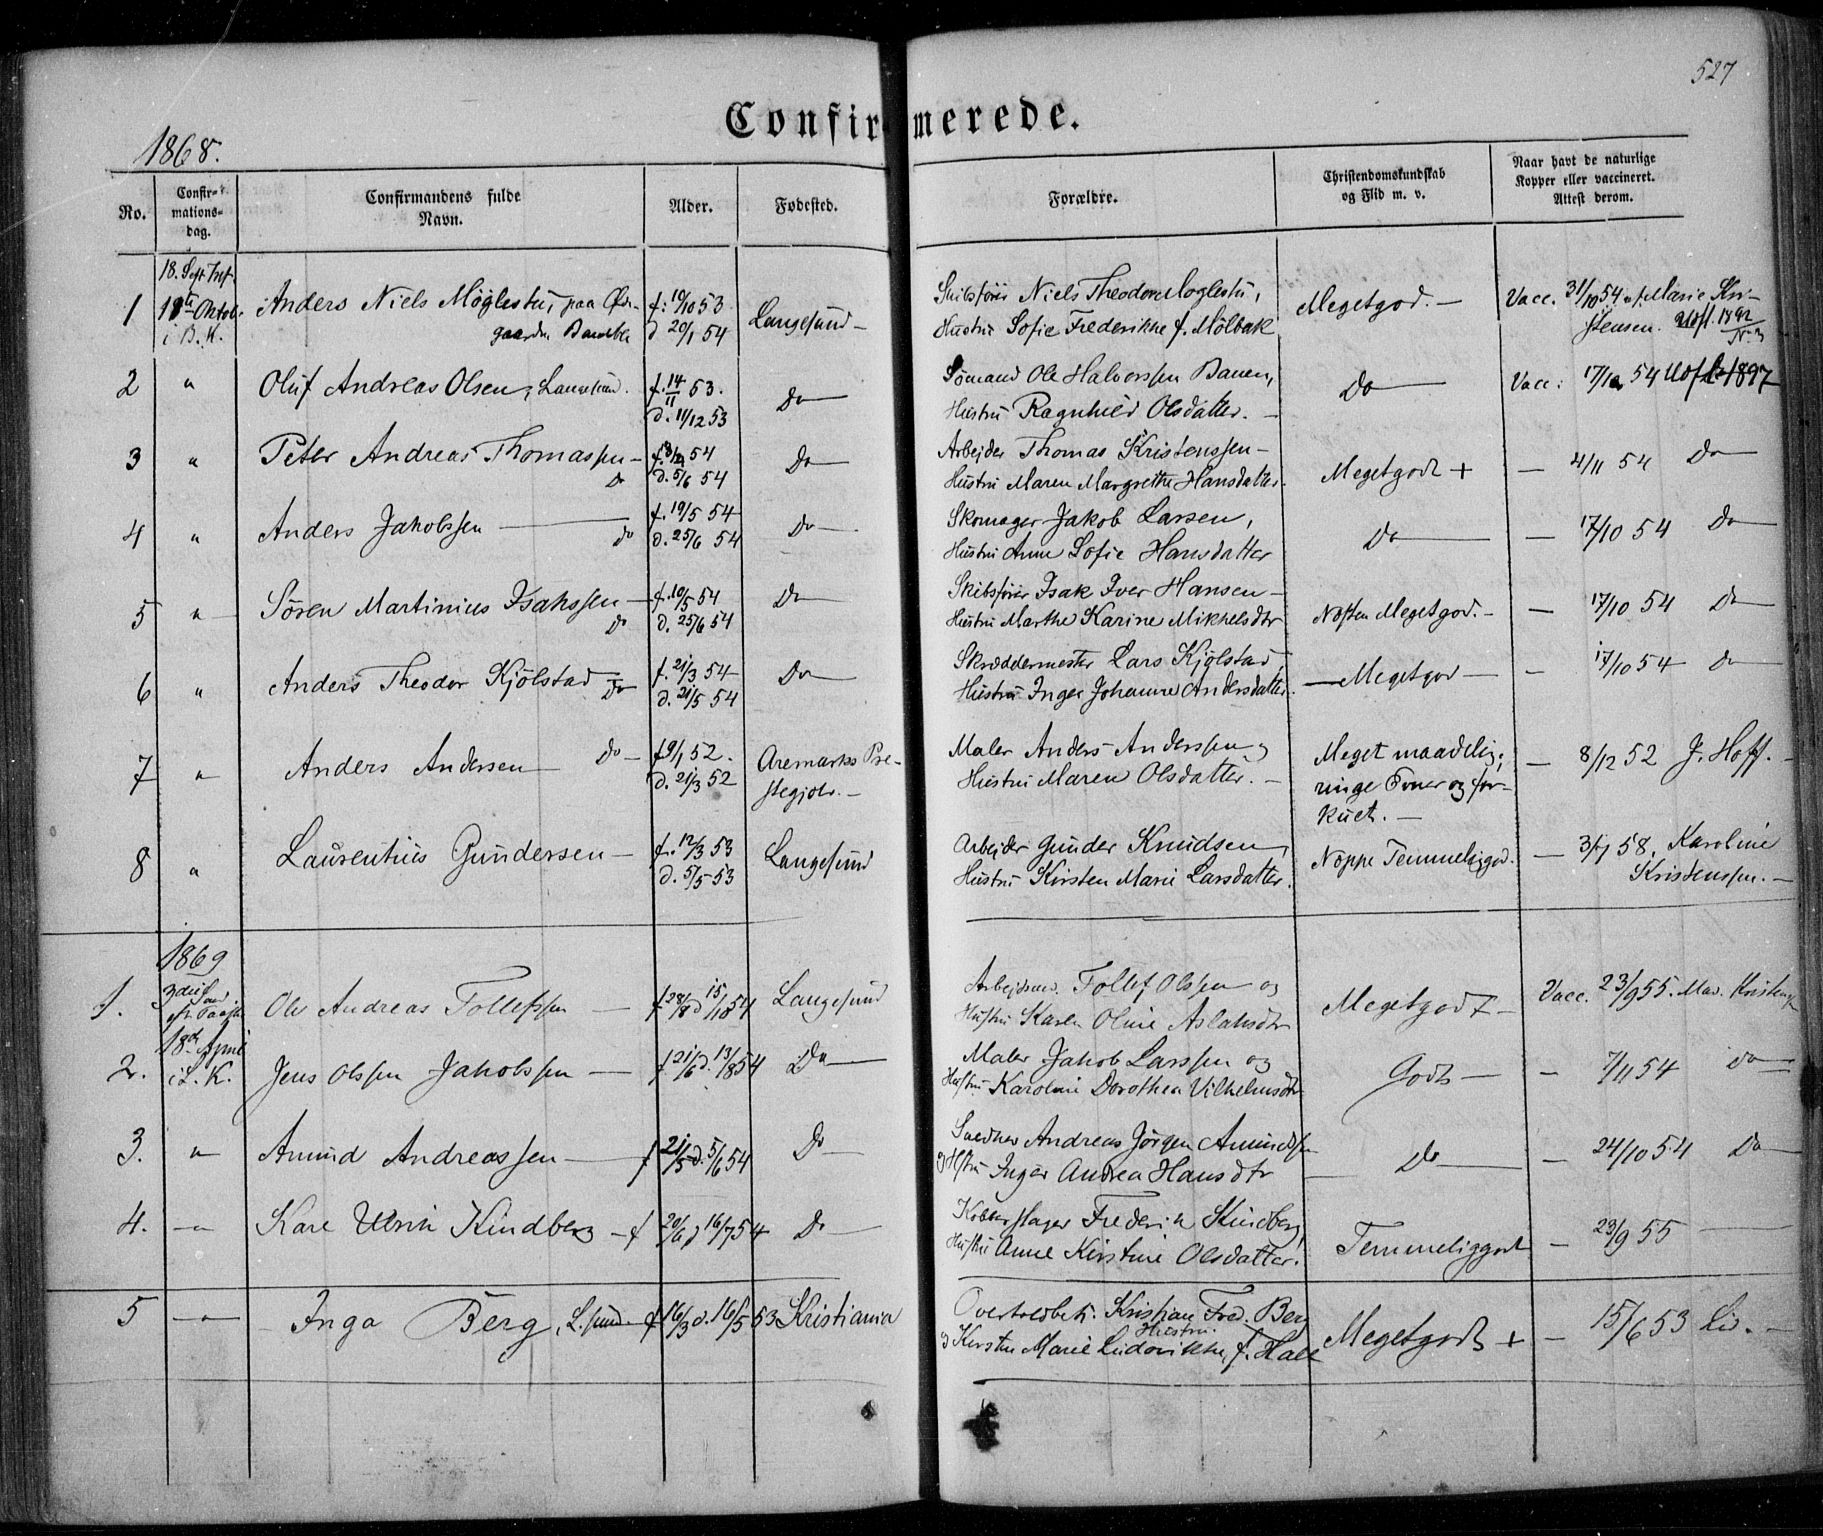 527
Confirmerede.
1868.
No.
Confir-
mations-
dag.
Confirmandens fulde
Navn.
Alder.
Fødested.
Forældre.
Christendomskundskab
og Flid m. v.
Naar havt de naturlige
Kopper eller vaccineret.
Attest derom.
18. Sept.
1 11te Oktob. Anders Niels Møglestu, paa f. 19/10 53 Langesund — Niels Theodor Moglestu, Megetgod. — Vacc. 31/10 54 Marie Kri-
i B. K. gaarden Bamble d 20/1 54 Hustru Sofie Frederikke f. Mölbak stensen.
2 " Oluf Andreas Olsen, f. 14/11 53. Do Sømand Ole Halvorssen Do Vacc: 54 1897
d. 11/12 53 Hustru Ragnhild Olsdatter. —
3 " Peter Andreas Thomassen — 54 Do Arbejder Thomas Kristenssen — Megetgodt + — 4/11 54 Do
Do d. 5/6 54 Hustru Maren Margrethe Hansdatter.
4 " Anders Jakobssen — f. 19/5 54 Do Skomager Jakob Larsen, Do — 17/10 54 Do
do d. 25/6 54 Hustru Anne Sofie Hansdatter
5 " Søren Martinius Isakssen — f. 10/5 54 Do Skibsfører Isak Iver Hansen — Næsten Megetgod. — — 17/10 54 Do
Do d. 25/6 54 Hustru Marthe Karine Mikkelsdtr
6 " Anders Theodor Kjölstad Do f. 21/3 54 Do Skræddermester Lars Kjølstad, — Megetgod — — 17/10 54 Do
d. 21/5 54 Hustru Inger Johanne Andersdatter.
7 " Anders Andersen Do — f 9/1 52. Aremarks Præ- Maler Anders Anderssen og Meget maadelig; — 8/12 52 J. Hoff. —
d. 21/3 52 stegjeld. — Hustru Maren Olsdatter. — ringe Evner og for-
kuet. —
8 " Laurentius Gundersen — f. 12/3 53 Langesund Arbejder Gunder Knudsen, Noppe Temmeliggod. — 58, Karoline
d. 5/5 53 Hustru Kirsten Marie Larsdatter. Kristenssen. —
1869
1. 3die Sønd. Ole Andreas Tollefssen — f 28/8 d 54 Langesund Tollef Olssen og Megetgodt — Vacc. 23/9 55. Mar.
ef. Paaske Hustru Karen Oline Aslaksdtr
18de April
2. i L. K. Jens Olssen Jakobssen — f 21/6 d. 13/8 54 Do Maler Jakob Larssen og Godt — — 7/11 54 Do
Hustru Karoline Dorothea Vilhelmsdtr
3. " Amund Andreassen — f 21/5 d. 5/6 54 Do Snedker Andreas Jørgen Amundssen Do — 24/10 54 Do
og Hstru Inger Andrea Hansdtr
4. " Karl Ulrik Kindberg — f 20/6 d 16/7 54 Do Kobberslager Frederik Kindberg, Temmeliggodt — 23/9 55 —
Hustru Anne Kirstine Olsdatter.
5 " Inga Berg, L.sund. f 16/3 d. 16/5 53 Kristiania Overtoldbetj. Kristian Fred. Berg Megetgodt + — 15/6 53 —
og Hustru
Kirsten Marie Ludovikke, f. Hall